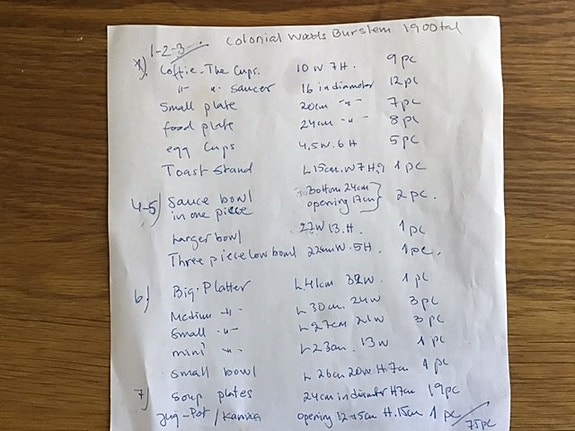 1-2-3 Colonial Woods Burslem 1900tal
Coffie-The Cups. 10W 7H. 9 pc
-"- "- saucer 16 in diameter 12 pc
Small plate 20cm -"- 7 pc
food plate 24cm -"- 8 pc
egg Cups 4,5W.6H 5 pc
Toast Stand L15cm.W7H9 1 pc
4-5) Sauce bowl bottom 24cm 2 pc.
in one piece opening 17cm
Larger bowl 27W 13.H. 1 pc
Three piece low bowl 22cmW.5H. 1 pc.
6) Big-Platter L41cm 32W. 1 pc
Medium -"- L30cm 24W 3 pc
Small -"- L27cm 21W 3 pc
mini -"- L23cm. 13W 1 pc
Small bowl L26cm 20W H.7cm 1 pc
7) Soup plates 24cm in diametr H7cm 19pc
Jug-Pot/Kanna opening 12-15cm H.15cm 1 pc
75pc